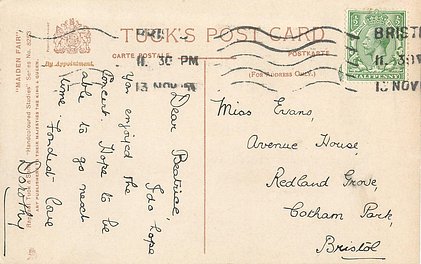 TUCK'S POST CARD
CARTE POSTALE
POSTKARTE
By Appointment.
(FOR ADDRESS ONLY.)
"MAIDEN FAIR"
Dear Beatrice,
I do hope
you enjoyed the
concert Hope to be
able to go next
time. Fondest love
Dorothy
BRIS
11. 30 PM
13 NOV
BRISTO
11. 30
13 NOV
HALFPENNY
Miss Evans,
Avenue House,
Redland Grove,
Cotham Park,
Bristol